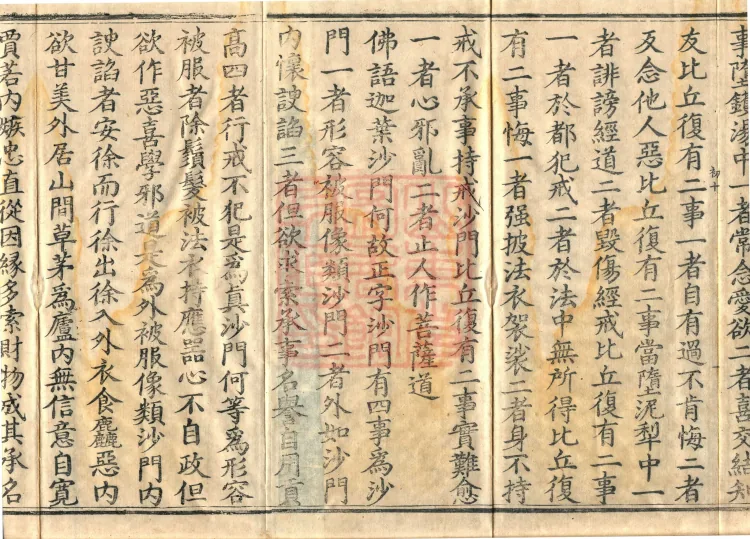 事墮鑊湯中一者常念愛欲二者喜交結知
友比丘復有二事一者自有過不肯悔二者
反念他人惡比丘復有二事當墮泥犁中一
者誹謗經道二者毀傷經戒比丘復有二事
一者於都犯戒二者於法中無所得比丘復
有二事悔一者强披法衣袈裟二者身不持
戒不承事持戒沙門比丘復有二事實難愈
一者心邪亂二者止人作菩薩道
佛語迦葉沙門何故正字沙門有四事爲沙
門一者形容被服像類沙門二者外如沙門
内懷諛諂三者但欲求索承事名譽自用貢
高四者行戒不犯是爲眞沙門何等爲形容
被服者除鬚髮被法衣持應器心不自政但
欲作惡喜學邪道是爲外被服像類沙門内
諛諂者安徐而行徐出徐入外衣食麤惡内
欲甘美外居山間草茅爲廬内無信意自寛
賈若内嫉忠直從因緣多索財物成其承名